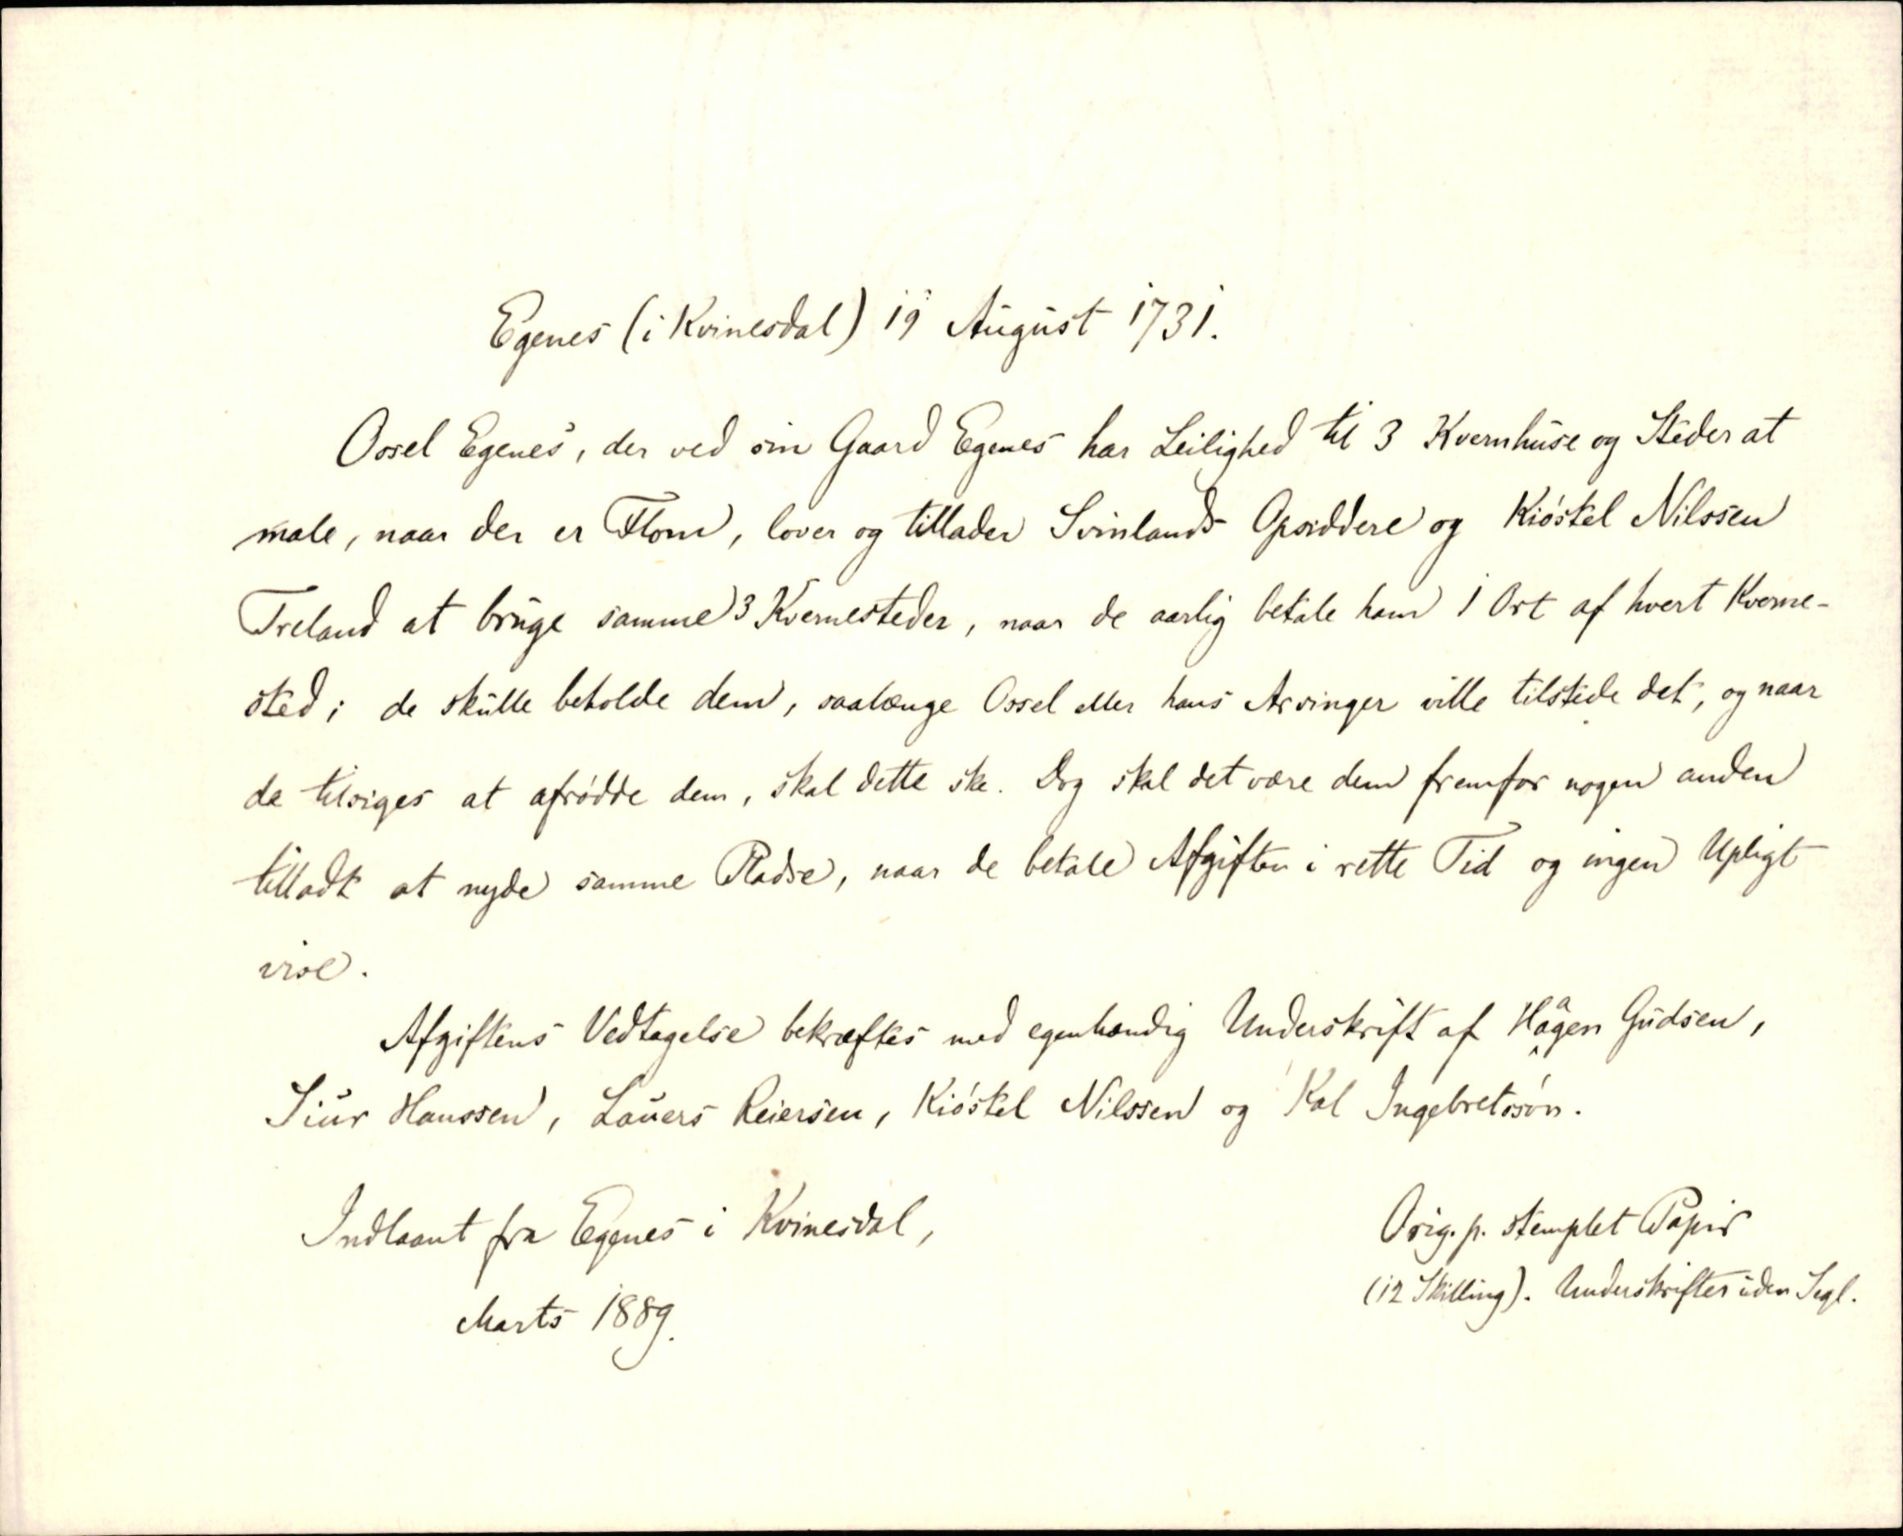 Egenes (i Kvinesdal) 19 August 1731.
Ossel Egenes, der ved sin Gaard Egenes har Leilighed til 3 Kvernhuse og Steder at
male, naar der er Flom, lover og tillader Svinlands Opsiddere og Kióstel Nilssen
Treland at bruge samme 3 Kvernesteder, naar de aarlig betale ham 1 Ort af hvert Kverne-
sted; de skulle beholde dem, saalænge Ossel eller hans Arvinger ville tilstede det, og naar
de tilsiges at afrödde dem, skal dette ske. Dog skal det være dem fremfor nogen anden
tilladt at nyde samme Pladse, naar de betale Afgiften i rette Tid og ingen Upligt
vise.
Afgiftens Vedtagelse bekræftes med egenhændig Underskrift af Hågen Gudsen,
Siur Hanssen, Lauers Reiersen, Kióstel Nilssen og Kal Ingebretssón.
Indlaant fra Egenes i Kvinesdal,
Marts 1889.
Orig. p. stemplet Papir
(12 Skilling). Underskrifter uden Segl.